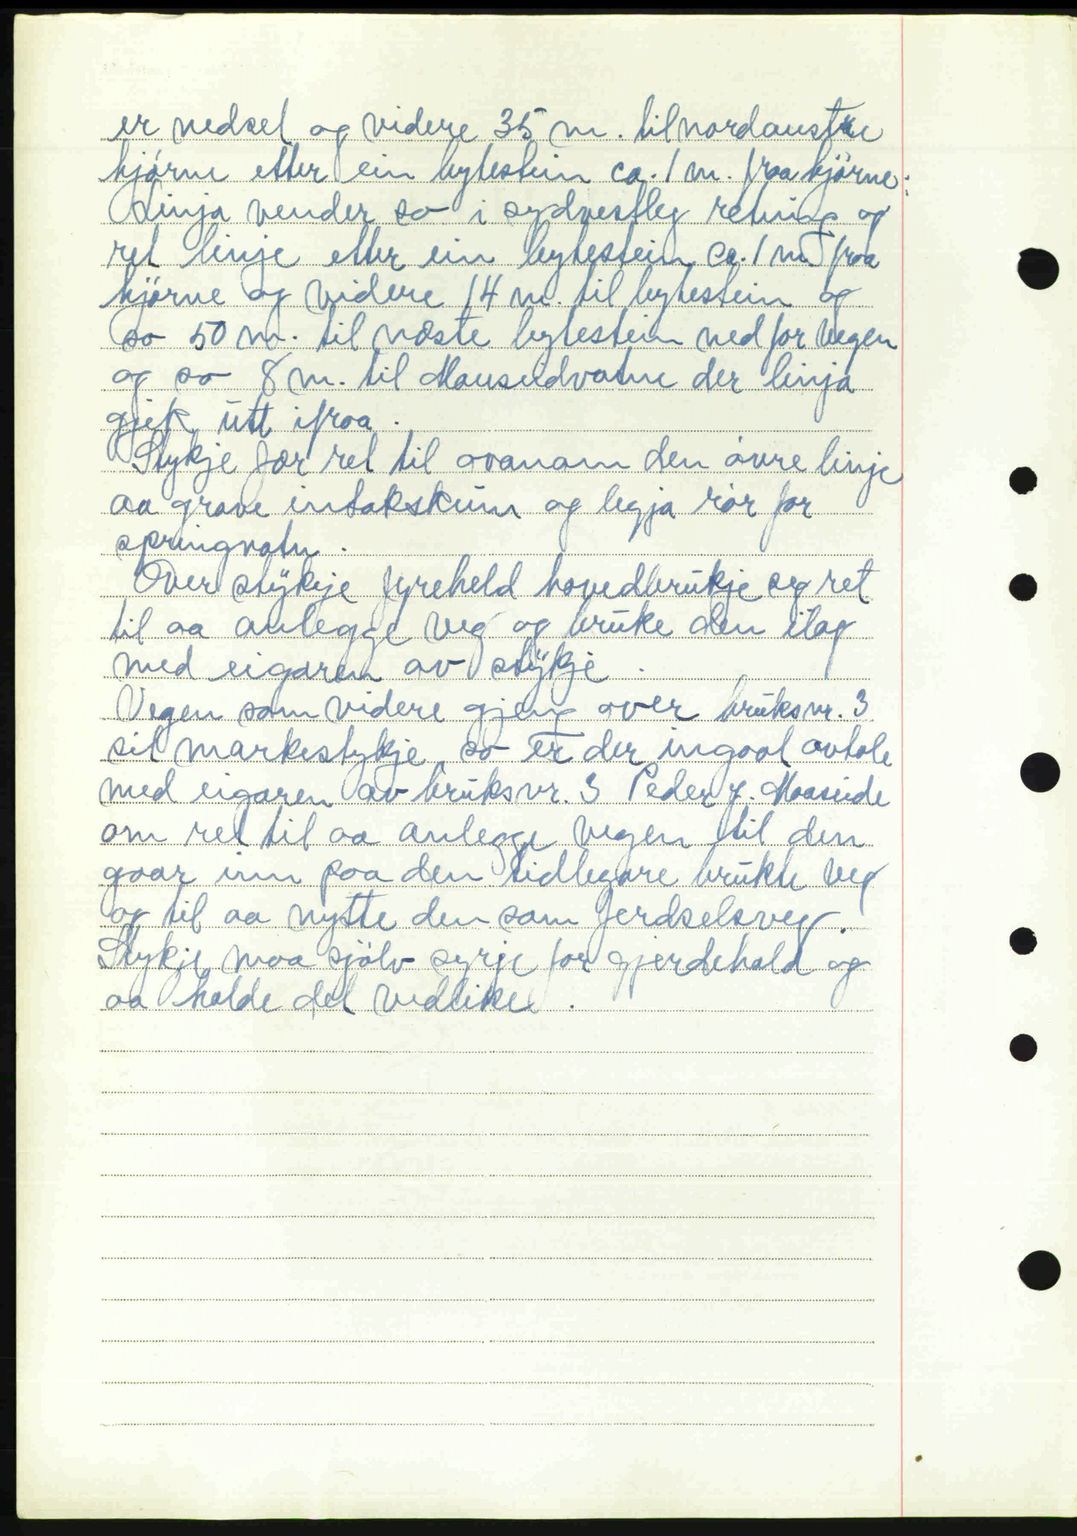 er nedset og videre 35 m. til nordaustre
hjørne etter ein bytestein ca. 1 m. fraa hjørne.
Linja vender so i sydvestleg retning og
ret linje etter ein bytestein ca. 1 m fraa
hjørne og videre 14 m. til bytestein og
so 50 m. til næste bytestein nedfor vegen
og so 8 m. til Mauseidvatne der linja
gjek ütt ifraa.
Stykje fær ret til ovanom den øvre linje
aa grave intakskum og legja rör for
springvatn.
Over stÿkje fyreheld hovedbrükje seg ret
til aa anlegge veg og brüke den ilag
med eigaren av stÿkje.
Vegen som videre gjeng over brüksnr. 3
sit markestykje, so er der ingaat avtale
med eigaren av brüksnr. 3 Peder J. Maaseide
om ret til aa anlegge vegen til den
gaar inn paa den tidlegare brükte veg
og til aa nytte den som ferdselsveg.
Stykje maa sjölv syrje for gjerdehald og
aa halde det vedlike.